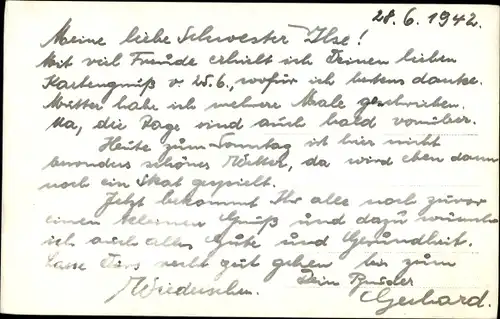 28.6.1942.
Meine liebe Schwester Ilse!
Mit viel Freude erhielt ich Deinen lieben
Kartengruß v. 25.6., wofür ich bestens danke.
Mutter habe ich mehrere Male geschrieben.
Na, die Tage sind auch bald vorüber.
Heute zum Sonntag ist hier nicht
besonders schönes Wetter, da wird eben dann
noch ein Skat gespielt.
Jetzt bekommt Ihr alle noch zuvor
einen kleinen Gruß und dazu wünsche
ich auch alles Gute und Gesundheit.
Lasse es recht gut gehen bis zum
Wiedersehen. Dein Bruder
Gerhard.